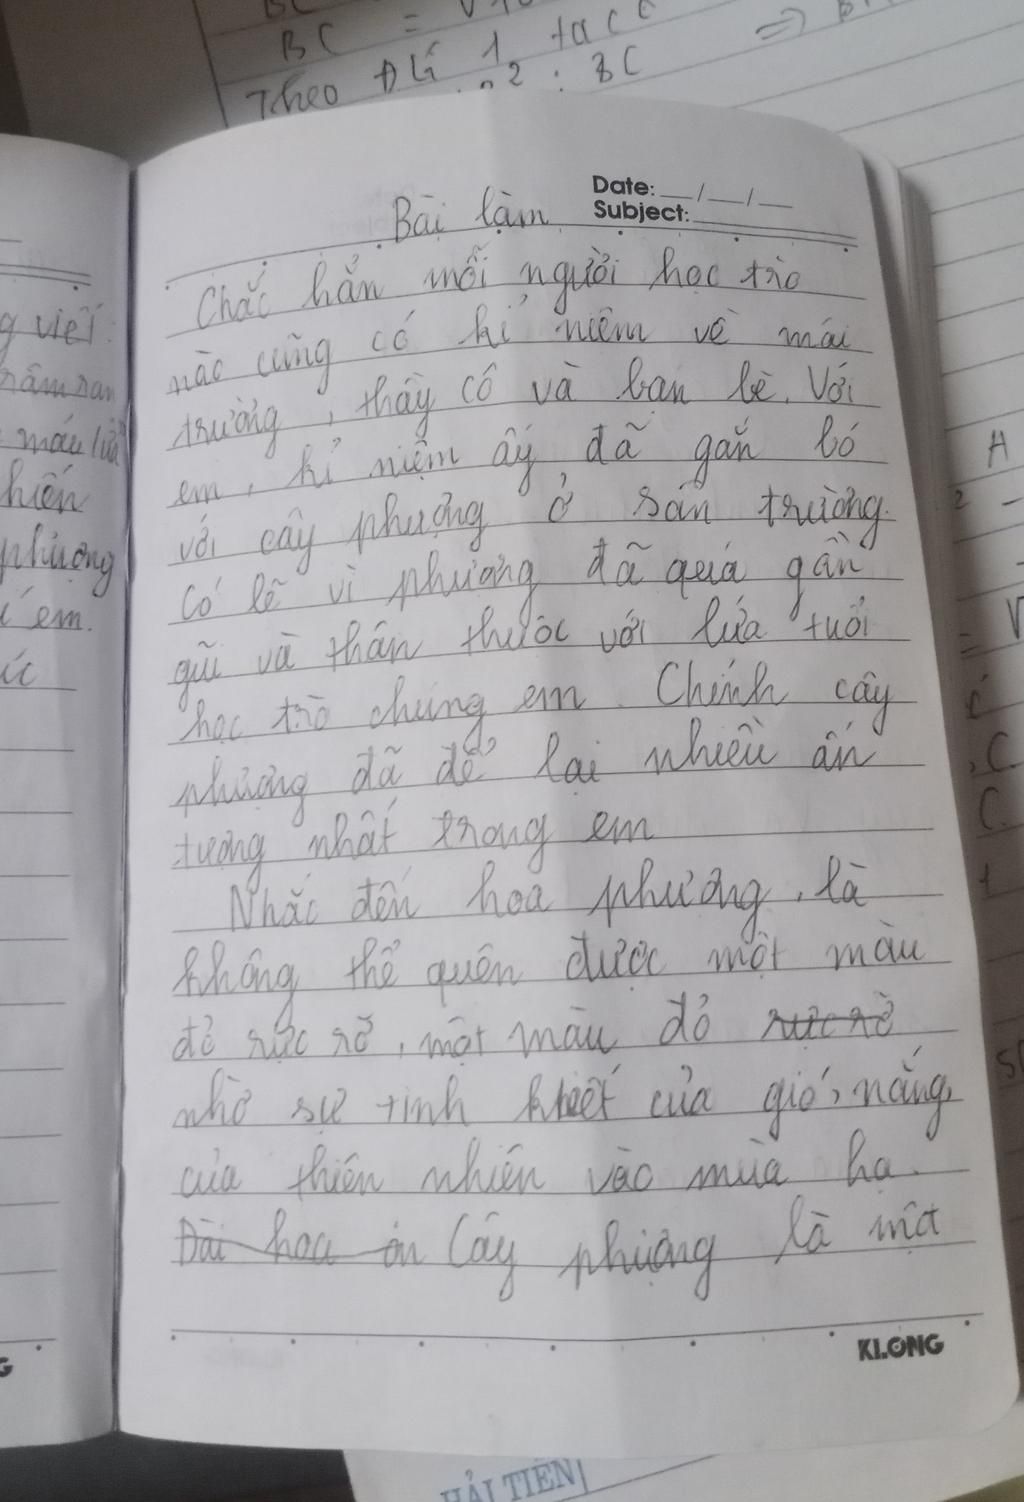 BC = √10
Theo ĐLí 1 ta có
BC
Date: __/__/__
Subject:
Bài làm
Chắc hẳn mỗi người học trò
nào cũng có kỉ niệm về mái
trường, thầy cô và bạn bè. Với
em, kỉ niệm ấy đã gắn bó
với cây phượng ở sân trường.
Có lẽ vì phượng đã quá gần
gũi và thân thuộc với lứa tuổi
học trò chúng em. Chính cây
phượng đã để lại nhiều ấn
tượng nhất trong em
Nhắc đến hoa phượng, là
không thể quên được một màu
đỏ rực rỡ, một màu đỏ rực rỡ
nhờ sự tinh khiết của gió, nắng,
của thiên nhiên vào mùa hạ.
Đài hoa ôn Cây phượng là một
KLONG
g viết:
râm ran
máu lửa
hiến
phượng
í em.
ức
HẢI TIẾN